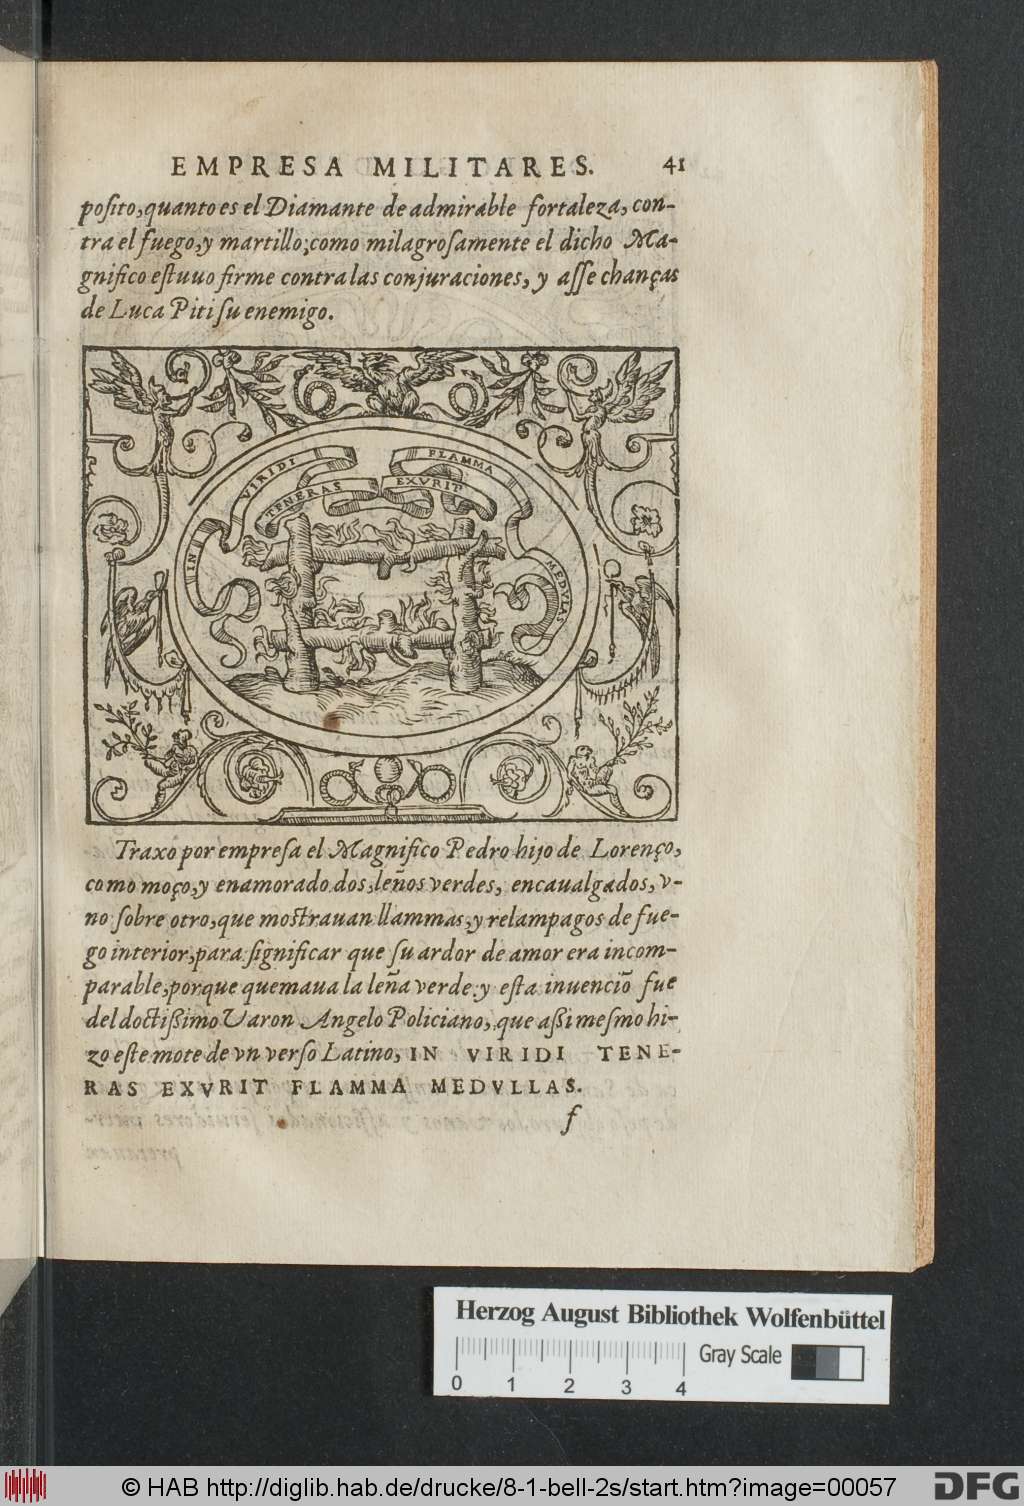 EMPRESA MILITARES. 41
posito,quanto es el Diamante de admirable fortaleza, con-
tra el fuego,y martillo;como milagrosamente el dicho Ma-
gnifico estuuo firme contra las conjuraciones, y asse chanças
de Luca Piti su enemigo.
IN VIRIDI TENERAS EXVRIT FLAMMA MEDVLAS
Traxo por empresa el Magnifico Pedro hijo de Lorenço,
como moço,y enamorado dos,leños verdes, encaualgados, v-
no sobre otro,que mostrauan llammas,y relampagos de fue-
go interior,para significar que su ardor de amor era incom-
parable,porque quemaua la leña verde:y esta inuenciõ fue
del doctissimo Varon Angelo Policiano, que assi mesmo hi-
zo este mote de vn verso Latino, IN VIRIDI TENE-
RAS EXVRIT FLAMMA MEDVLLAS.
f
Herzog August Bibliothek Wolfenbüttel
Gray Scale
0 1 2 3 4
© HAB http://diglib.hab.de/drucke/8-1-bell-2s/start.htm?image=00057
DFG